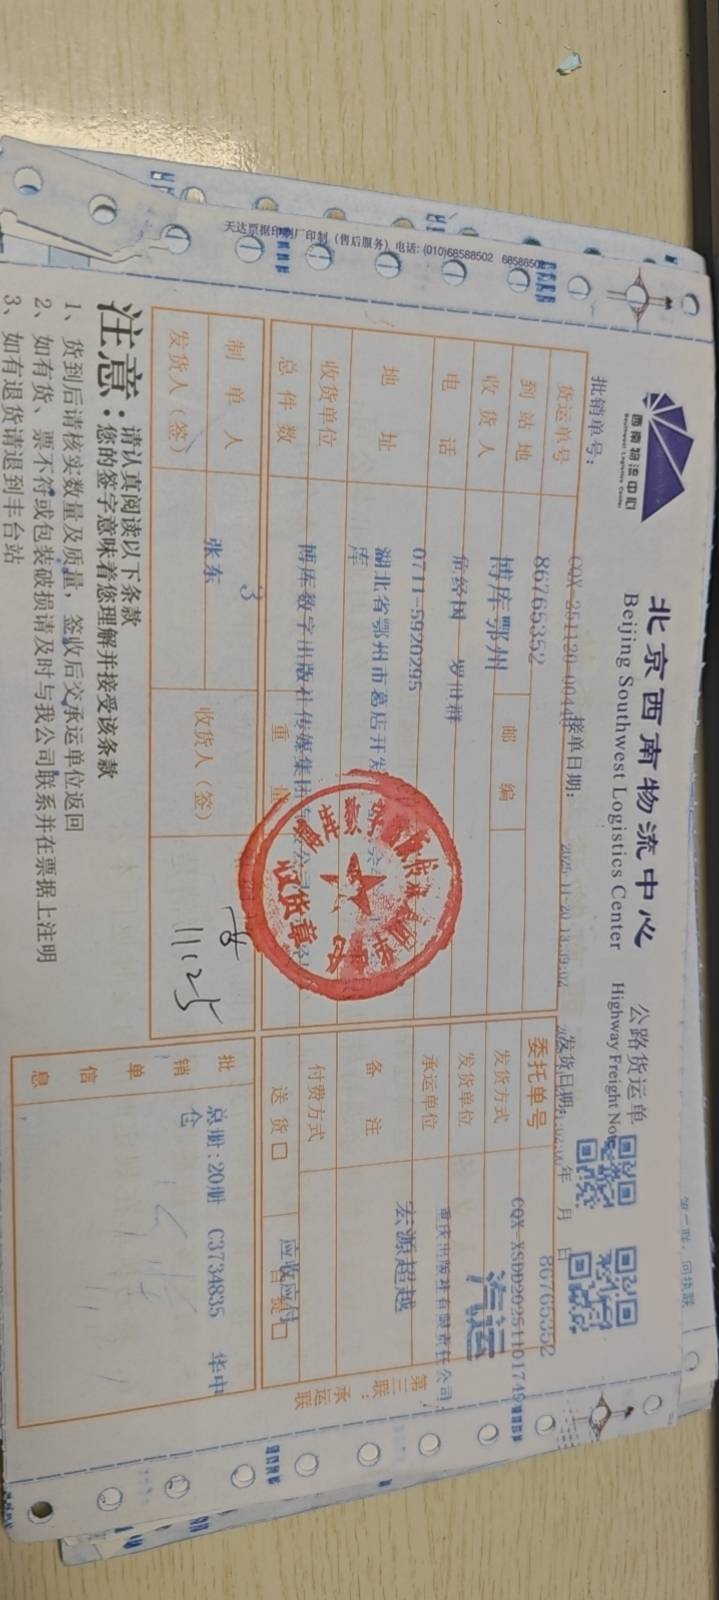 天达票据印刷厂印制（售后服务）电话: (010)68588502
西南物流中心
Southwest Logistics Center
北京西南物流中心 公路货运单
Beijing Southwest Logistics Center Highway Freight Note
第二联：回执联
批销单号： CQX-251120-0044 接单日期： 2025-11-20 13:39:02 发货日期： 年 月 日
货运单号 86765352 委托单号 86765352
CQX-XSDD20251101749
到站地 博库鄂州 邮编 发货方式 汽运
收货人 危经国 罗世群 发货单位 重庆出版社有限责任公司
电话 0711-5920295 承运单位 宏源超越
地址 湖北省鄂州市葛店开发
库
备注
收货单位 博库数字出版社传媒集团有限公司
付费方式 应收应付
总件数 3 重量
送货 □ 自提 □
制单人 张东 收货人（签）
11.25
发货人（签）
批销单信息 总册：20册 C3734835 华中
仓
第三联：承运联
收货章
注意： 请认真阅读以下条款
您的签字意味着您理解并接受该条款
1、货到后请核实数量及质量，签收后交承运单位返回
2、如有货、票不符或包装破损请及时与我公司联系并在票据上注明
3、如有退货请退到丰台站